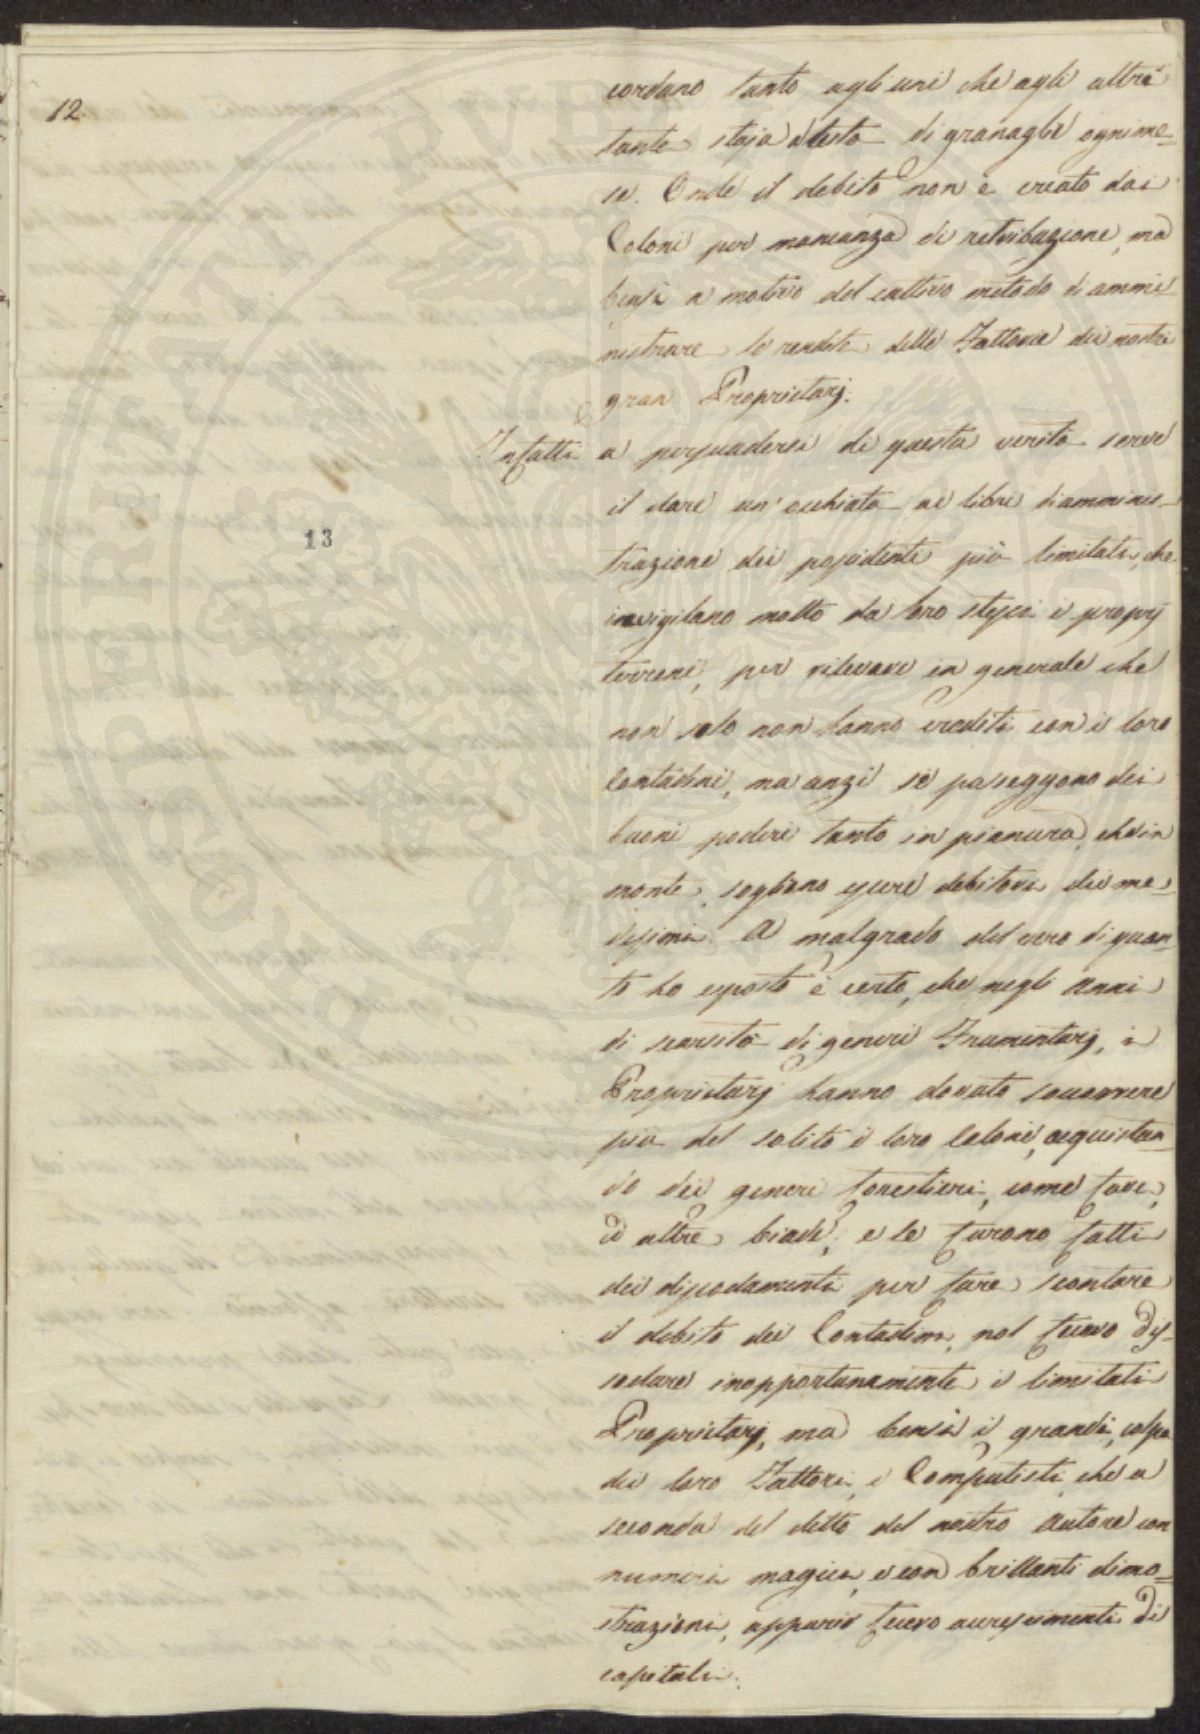 12.
cordano tanto agli uni che agli altri
tante staja a testa di granaglie ogni me=
se. Onde il debito non è creato dai
Coloni per mancanza di retribuzione, ma
bensì a motivo del cattivo metodo di ammi
nistrare le rendite delle Fattorie dei nostri
gran Proprietarj.
Infatti a persuadersi di questa verità serve
il dare un'occhiata ai libri di ammines-
trazione dei possidenti più limitati, che
invigilano molto da loro stessi i proprj
terreni, per rilevare in generale che
non solo non hanno crediti con i loro
Contadini, ma anzi se posseggono dei
buoni poderi tanto in pianura, che in
monte, sogliono essere debitori dei me=
desimi. A malgrado del vero di quan=
to ho esposto è certo, che negli Anni
di scarsità di generi Frumentarj, i
Proprietarj hanno dovuto soccorrere
più del solito i loro Coloni, acquistan
do dei generi forestieri, come fave,
ed altre biade, e se furono fatti
dei dissodamenti per fare scontare
il debito dei Contadini, nol fecero dis-
sodare inopportunamente i limitati
Proprietarj, ma bensì i grandi, colpa
dei loro Fattori, e Computisti, che a
seconda del detto del nostro Autore con
numeri magici, e con brillanti dimo=
strazioni, apparir fecero accrescimenti di
capitali.
13